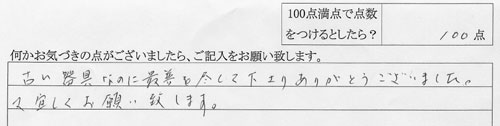 100点満点で点数
をつけるとしたら？
100点
何かお気づきの点がございましたら、ご記入をお願い致します。
古い器具なのに最善を尽して下さりありがとうございました。
又宜しくお願い致します。